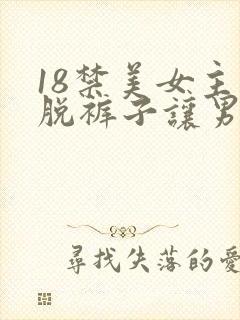 18禁美女主
脱裤子讓男
尋找失落的愛